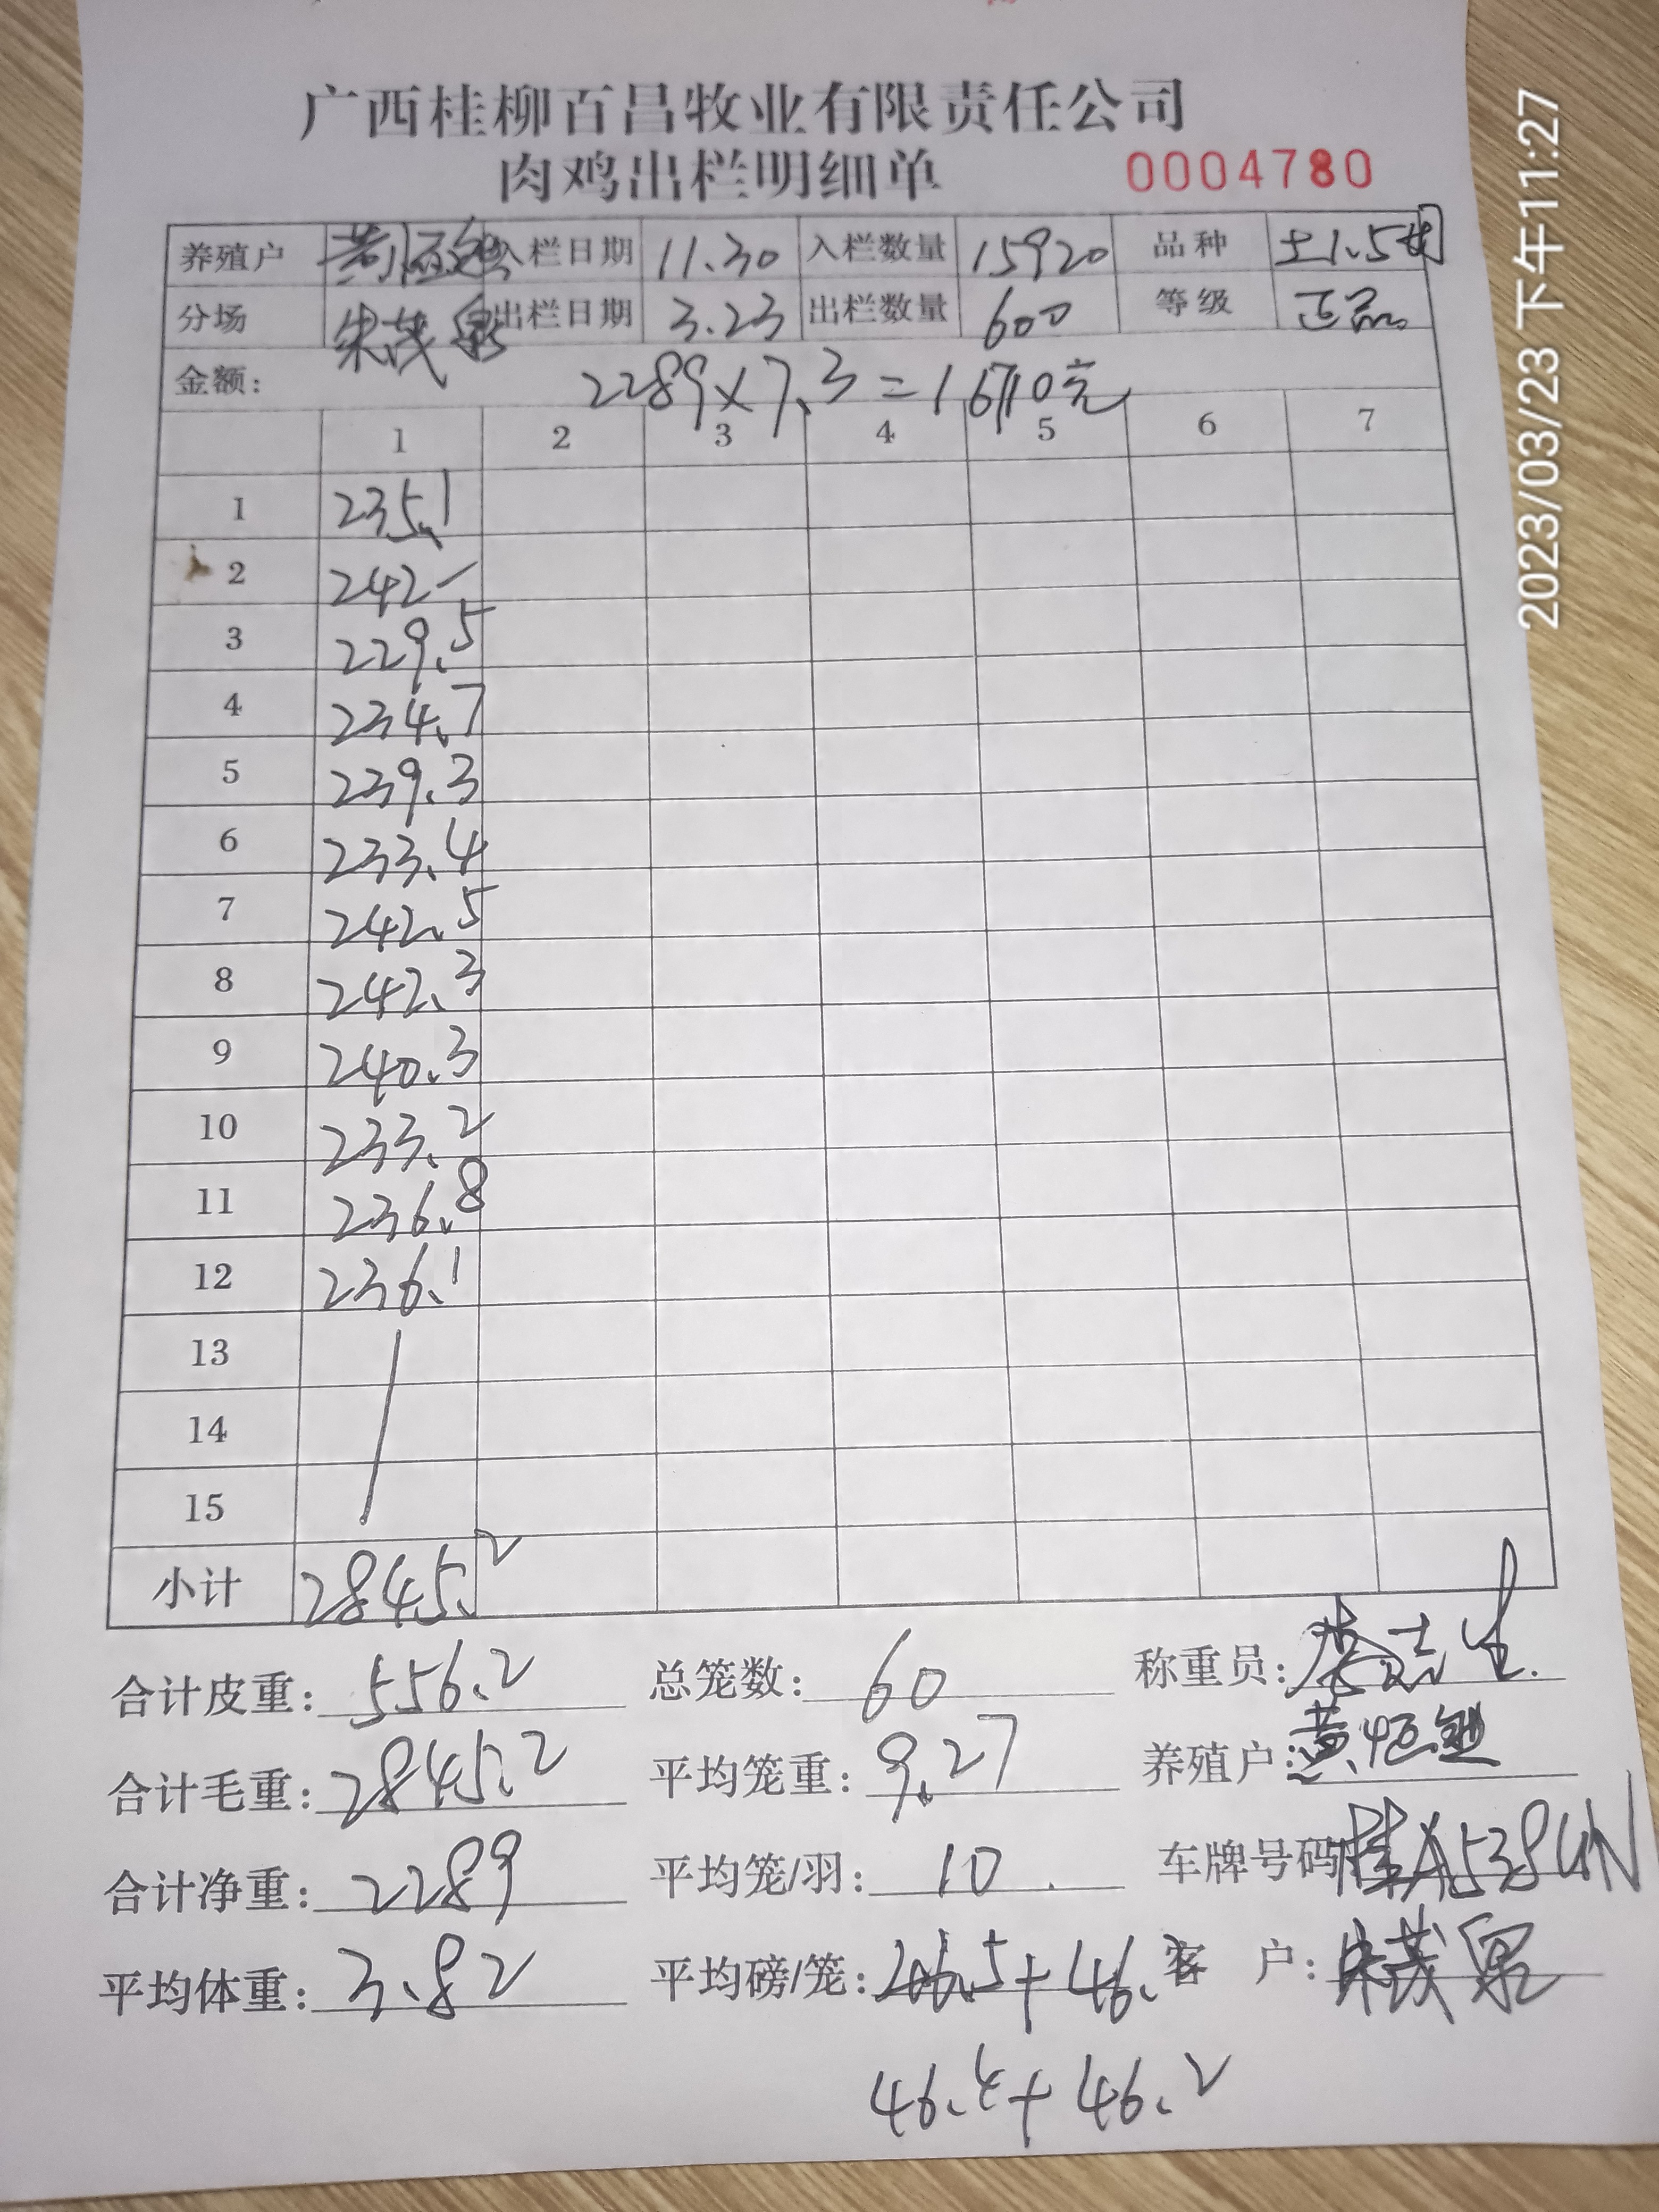 广西桂柳百昌牧业有限责任公司
肉鸡出栏明细单 0004780
养殖户 入栏日期 11.30 入栏数量 15920 品种 土1.5
分场 朱茂 出栏日期 3.23 出栏数量 600 等级 正品
金额: 2289×7.3=16710元
1 2 3 4 5 6 7
1 235.1
2 242-
3 229.5
4 234.7
5 239.3
6 233.4
7 242.5
8 242.3
9 240.3
10 233.2
11 236.8
12 236.1
13
14
15
小计 2845.2
合计皮重: 556.2 总笼数: 60 称重员:
合计毛重: 2845.2 平均笼重: 9.27 养殖户: 黄恒
合计净重: 2289 平均笼/羽: 10 车牌号码 桂A
平均体重: 3.82 平均磅/笼: +46. 客 户: 朱茂
46.4+46.2
2023/03/23 下午11:27